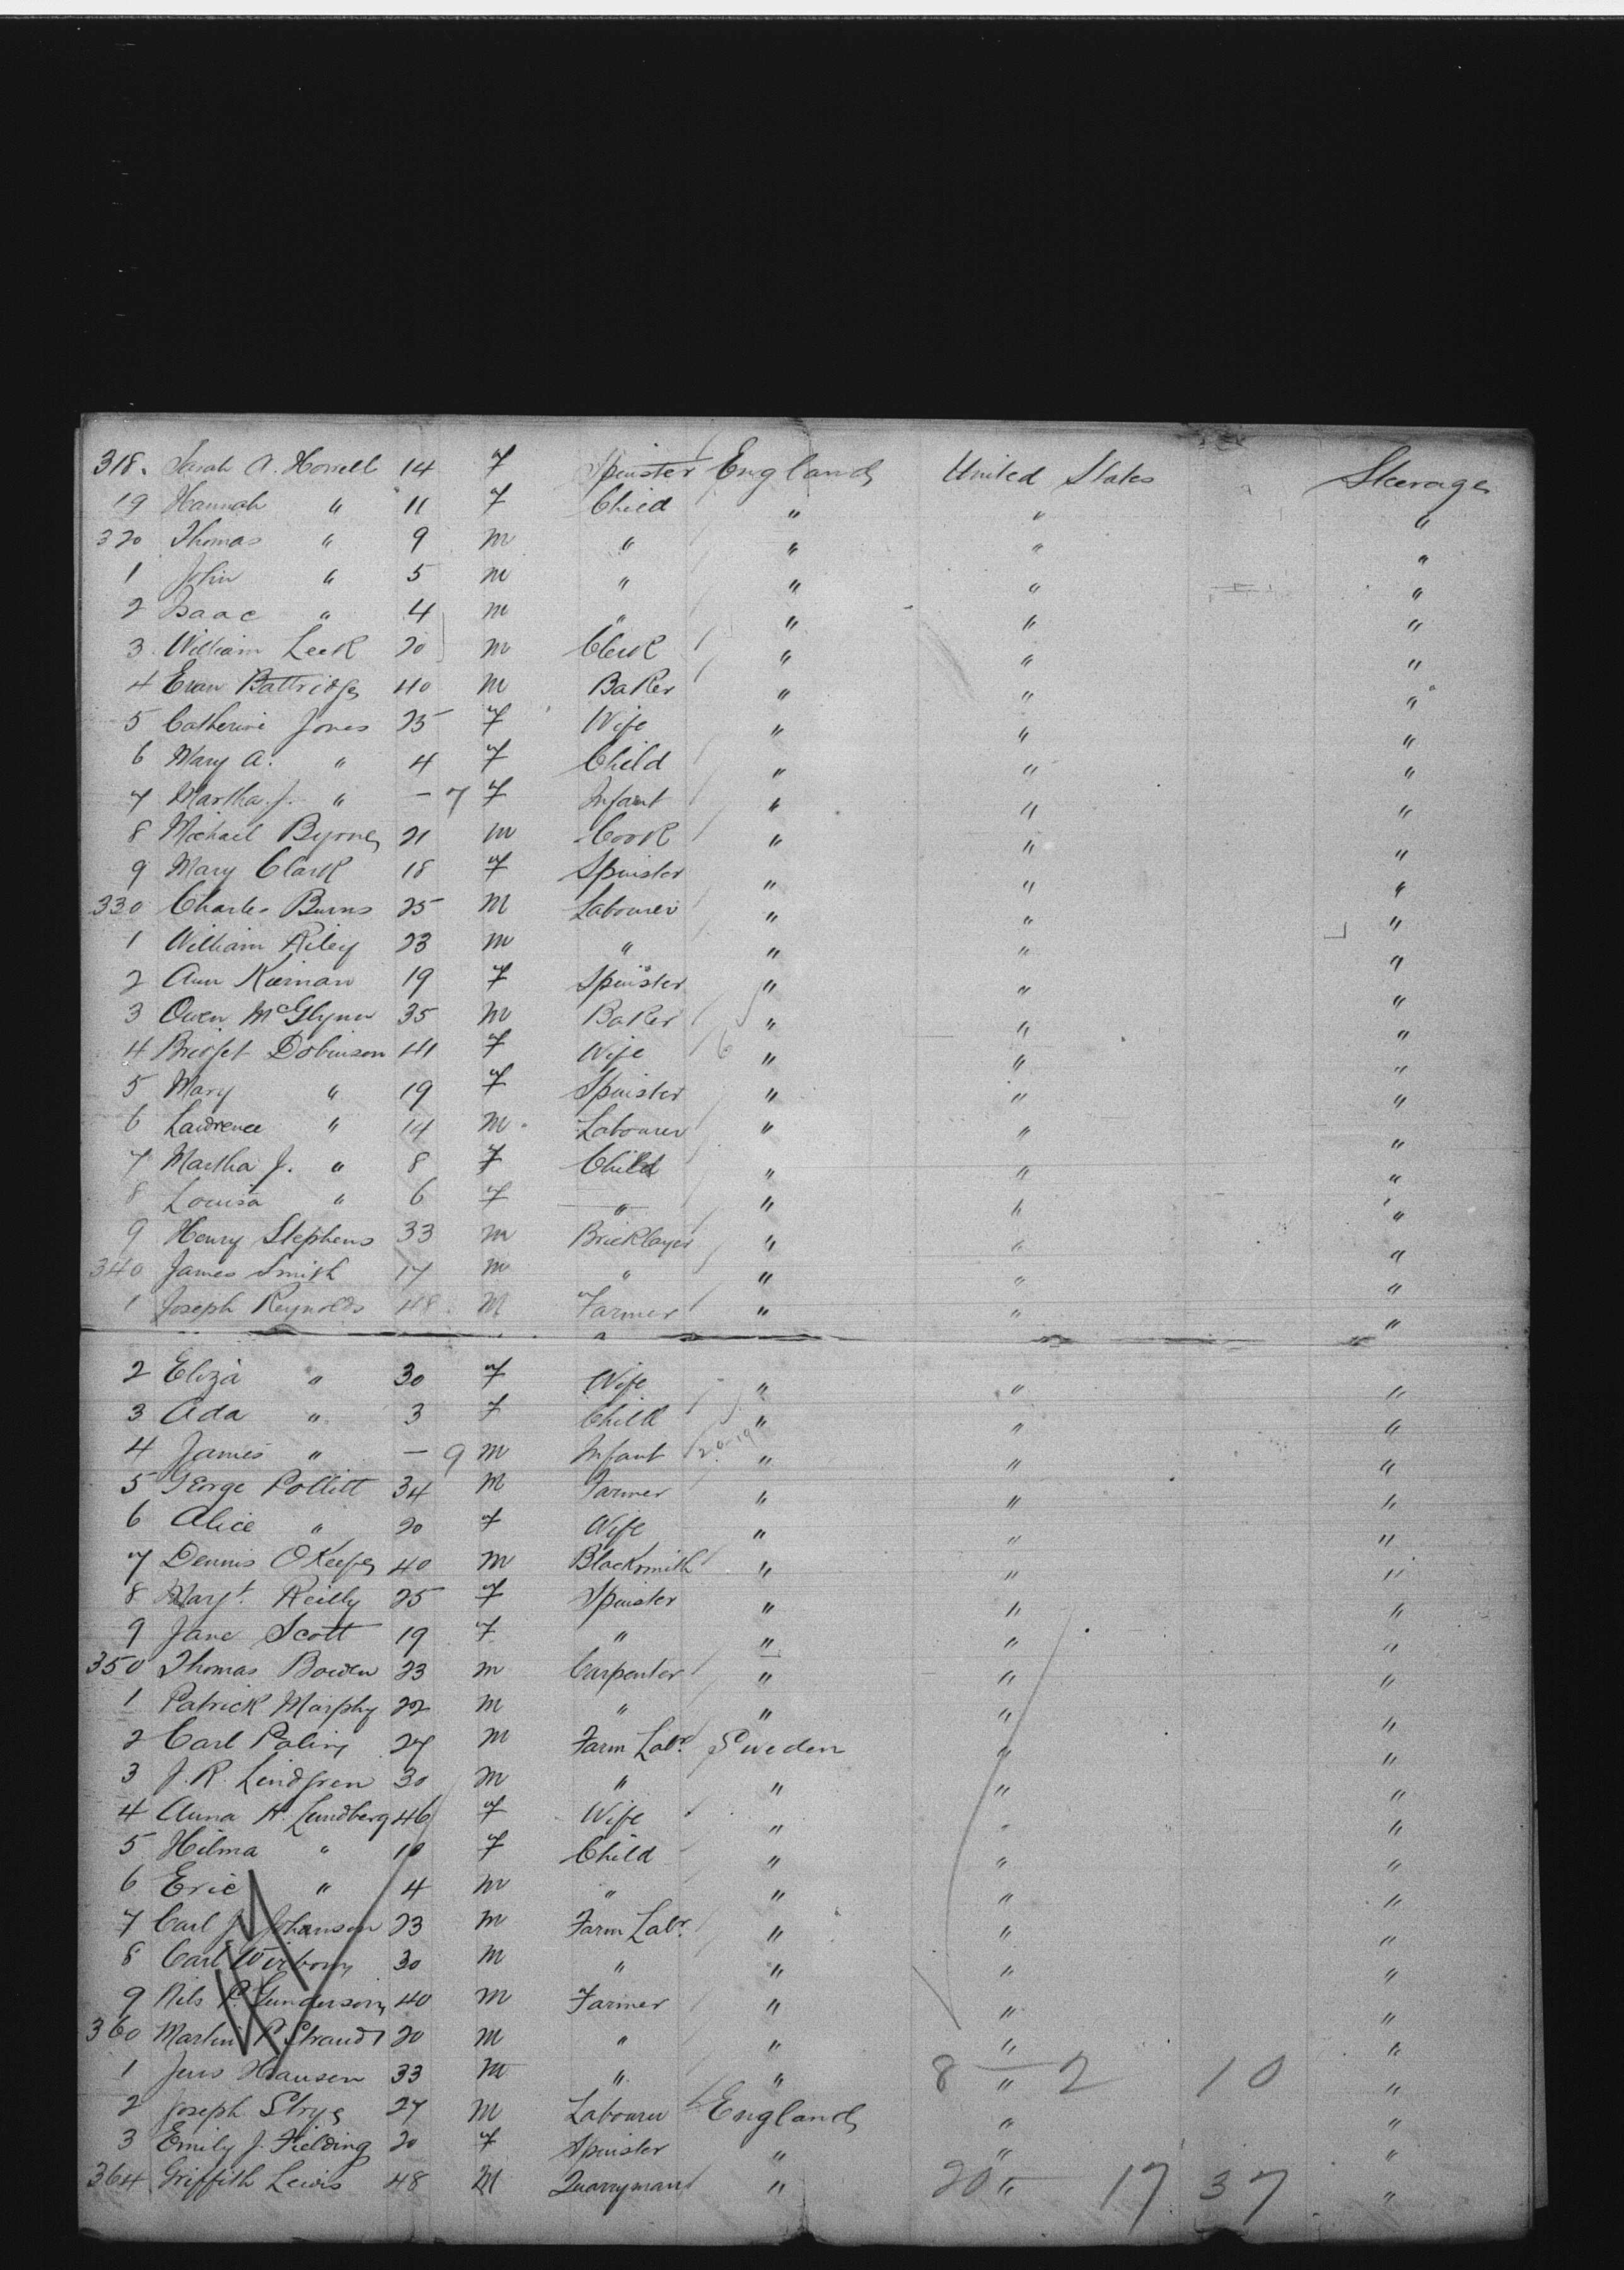 318. Sarah A. Horrell 14 F Spinster England United States Steerage
19 Hannah " 11 F Child " " "
320 Thomas " 9 M " " " "
1 John " 5 M " " " "
2 Isaac " 4 M " " " "
3 William Leek 20 M Clerk " " "
4 Evan Battridge 40 M Baker " " "
5 Catherine Jones 25 F Wife " " "
6 Mary A. " 4 F Child " " "
7 Martha J. " – 7 F Infant " " "
8 Michael Byrne 21 M Cook " " "
9 Mary Clark 18 F Spinster " " "
330 Charles Burns 25 M Labourer " " "
1 William Riley 23 M " " " "
2 Ann Kiernan 19 F Spinster " " "
3 Owen McGlynn 35 M Baker " " "
4 Bridget Dobinson 41 F Wife 6 " " "
5 Mary " 19 F Spinster " " "
6 Lawrence " 14 M Labourer " " "
7 Martha J. " 8 F Child " " "
8 Louisa " 6 F " " " "
9 Henry Stephens 33 M Bricklayer " " "
340 James Smith 17 M " " " "
1 Joseph Reynolds 48 M Farmer " " "
2 Eliza " 30 F Wife " " "
3 Ada " 3 F Child " " "
4 James " – 9 M Infant " " "
5 George Pollitt 34 M Farmer " " "
6 Alice " 20 F Wife " " "
7 Dennis OKeefe 40 M Blacksmith " " "
8 Margt. Reilly 25 F Spinster " " "
9 Jane Scott 19 F " " " "
350 Thomas Bowden 23 M Carpenter " " "
1 Patrick Murphy 22 M " " " "
2 Carl Paling 27 M Farm Labr. Sweden " "
3 J. R. Lindgren 30 M " " " "
4 Anna H. Lundberg 46 F Wife " " "
5 Hilma " 10 F Child " " "
6 Eric " 4 M " " " "
7 Carl J. Johanson 23 M Farm Labr. " " "
8 Carl 30 M " " " "
9 Nils P. Gunderson 40 M Farmer " " "
360 Martin P. Strand 20 M " " " "
1 Jens Hansen 33 M " " " "
8 – 2 10
2 Joseph Strye 27 M Labourer England " "
3 Emily J. Fielding 20 F Spinster " " "
364 Griffith Lewis 48 M Quarryman " " "
20 – 17 37